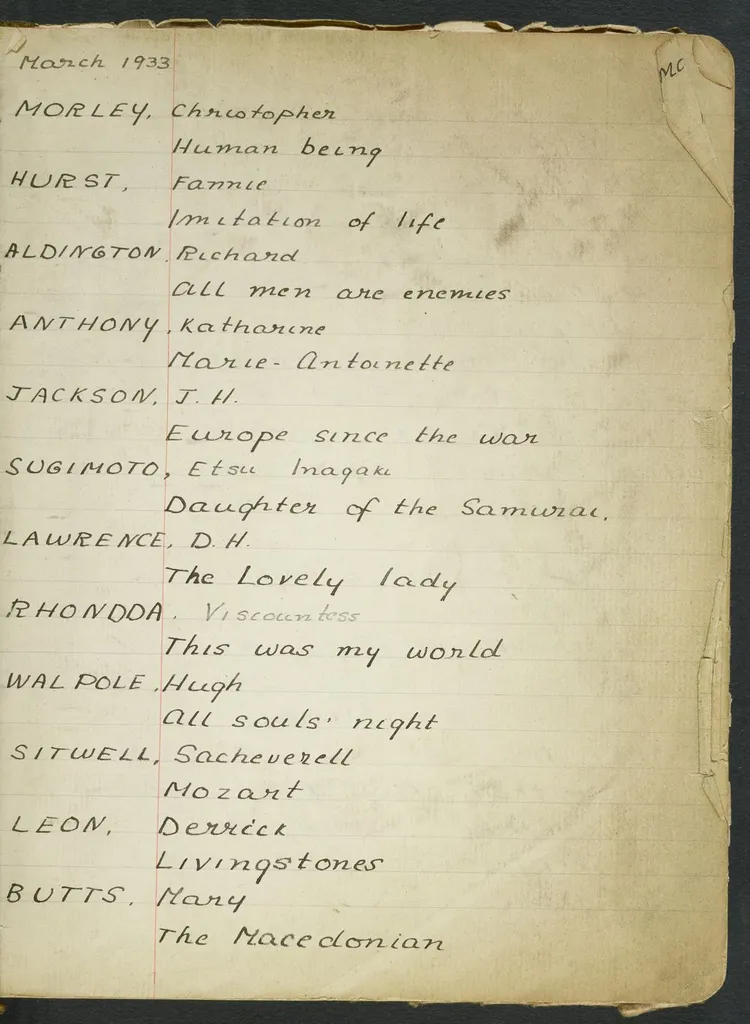 March 1933
MC
MORLEY, Christopher
Human being
HURST, Fannie
Imitation of life
ALDINGTON, Richard
All men are enemies
ANTHONY, Katharine
Marie-Antoinette
JACKSON, J. H.
Europe since the war
SUGIMOTO, Etsu Inagaki
Daughter of the Samurai.
LAWRENCE, D. H.
The Lovely lady
RHONDDA. Viscountess
This was my world
WALPOLE, Hugh
All souls' night
SITWELL, Sacheverell
Mozart
LEON, Derrick
Livingstones
BUTTS, Mary
The Macedonian